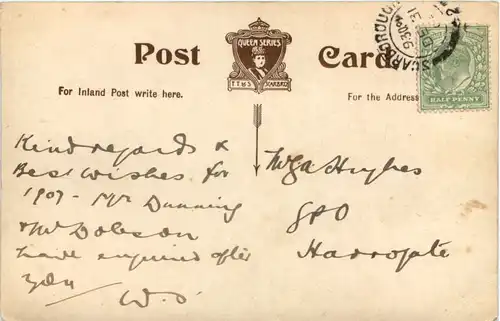 Post Card
QUEEN SERIES
T.T & S SCARBRO
For Inland Post write here.
For the Address
SCARBOROUGH
9.30PM
DE 31
HALF PENNY
Kind regards &
Best wishes for
1907 - Mr Dunning
& Mr Dobson
have enquired after
you
W.S.
Hughes
GPO
Harrogate